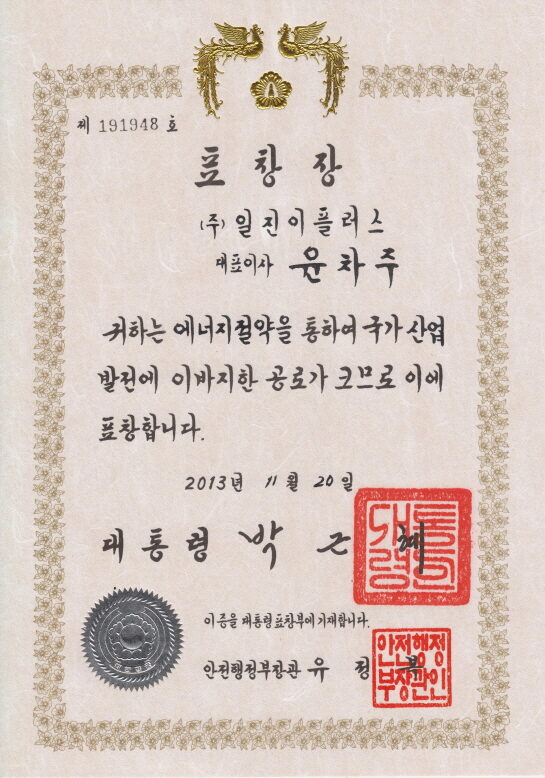 제 191948 호
표창장
(주) 일진이플러스
대표이사 윤차주
귀하는 에너지절약을 통하여 국가 산업
발전에 이바지한 공로가 크므로 이에
표창합니다.
2013년 11월 20일
대통령 박근혜
대통령인
이 증을 대통령표창부에 기재합니다.
안전행정부장관 유정복
안전행정
부장관인